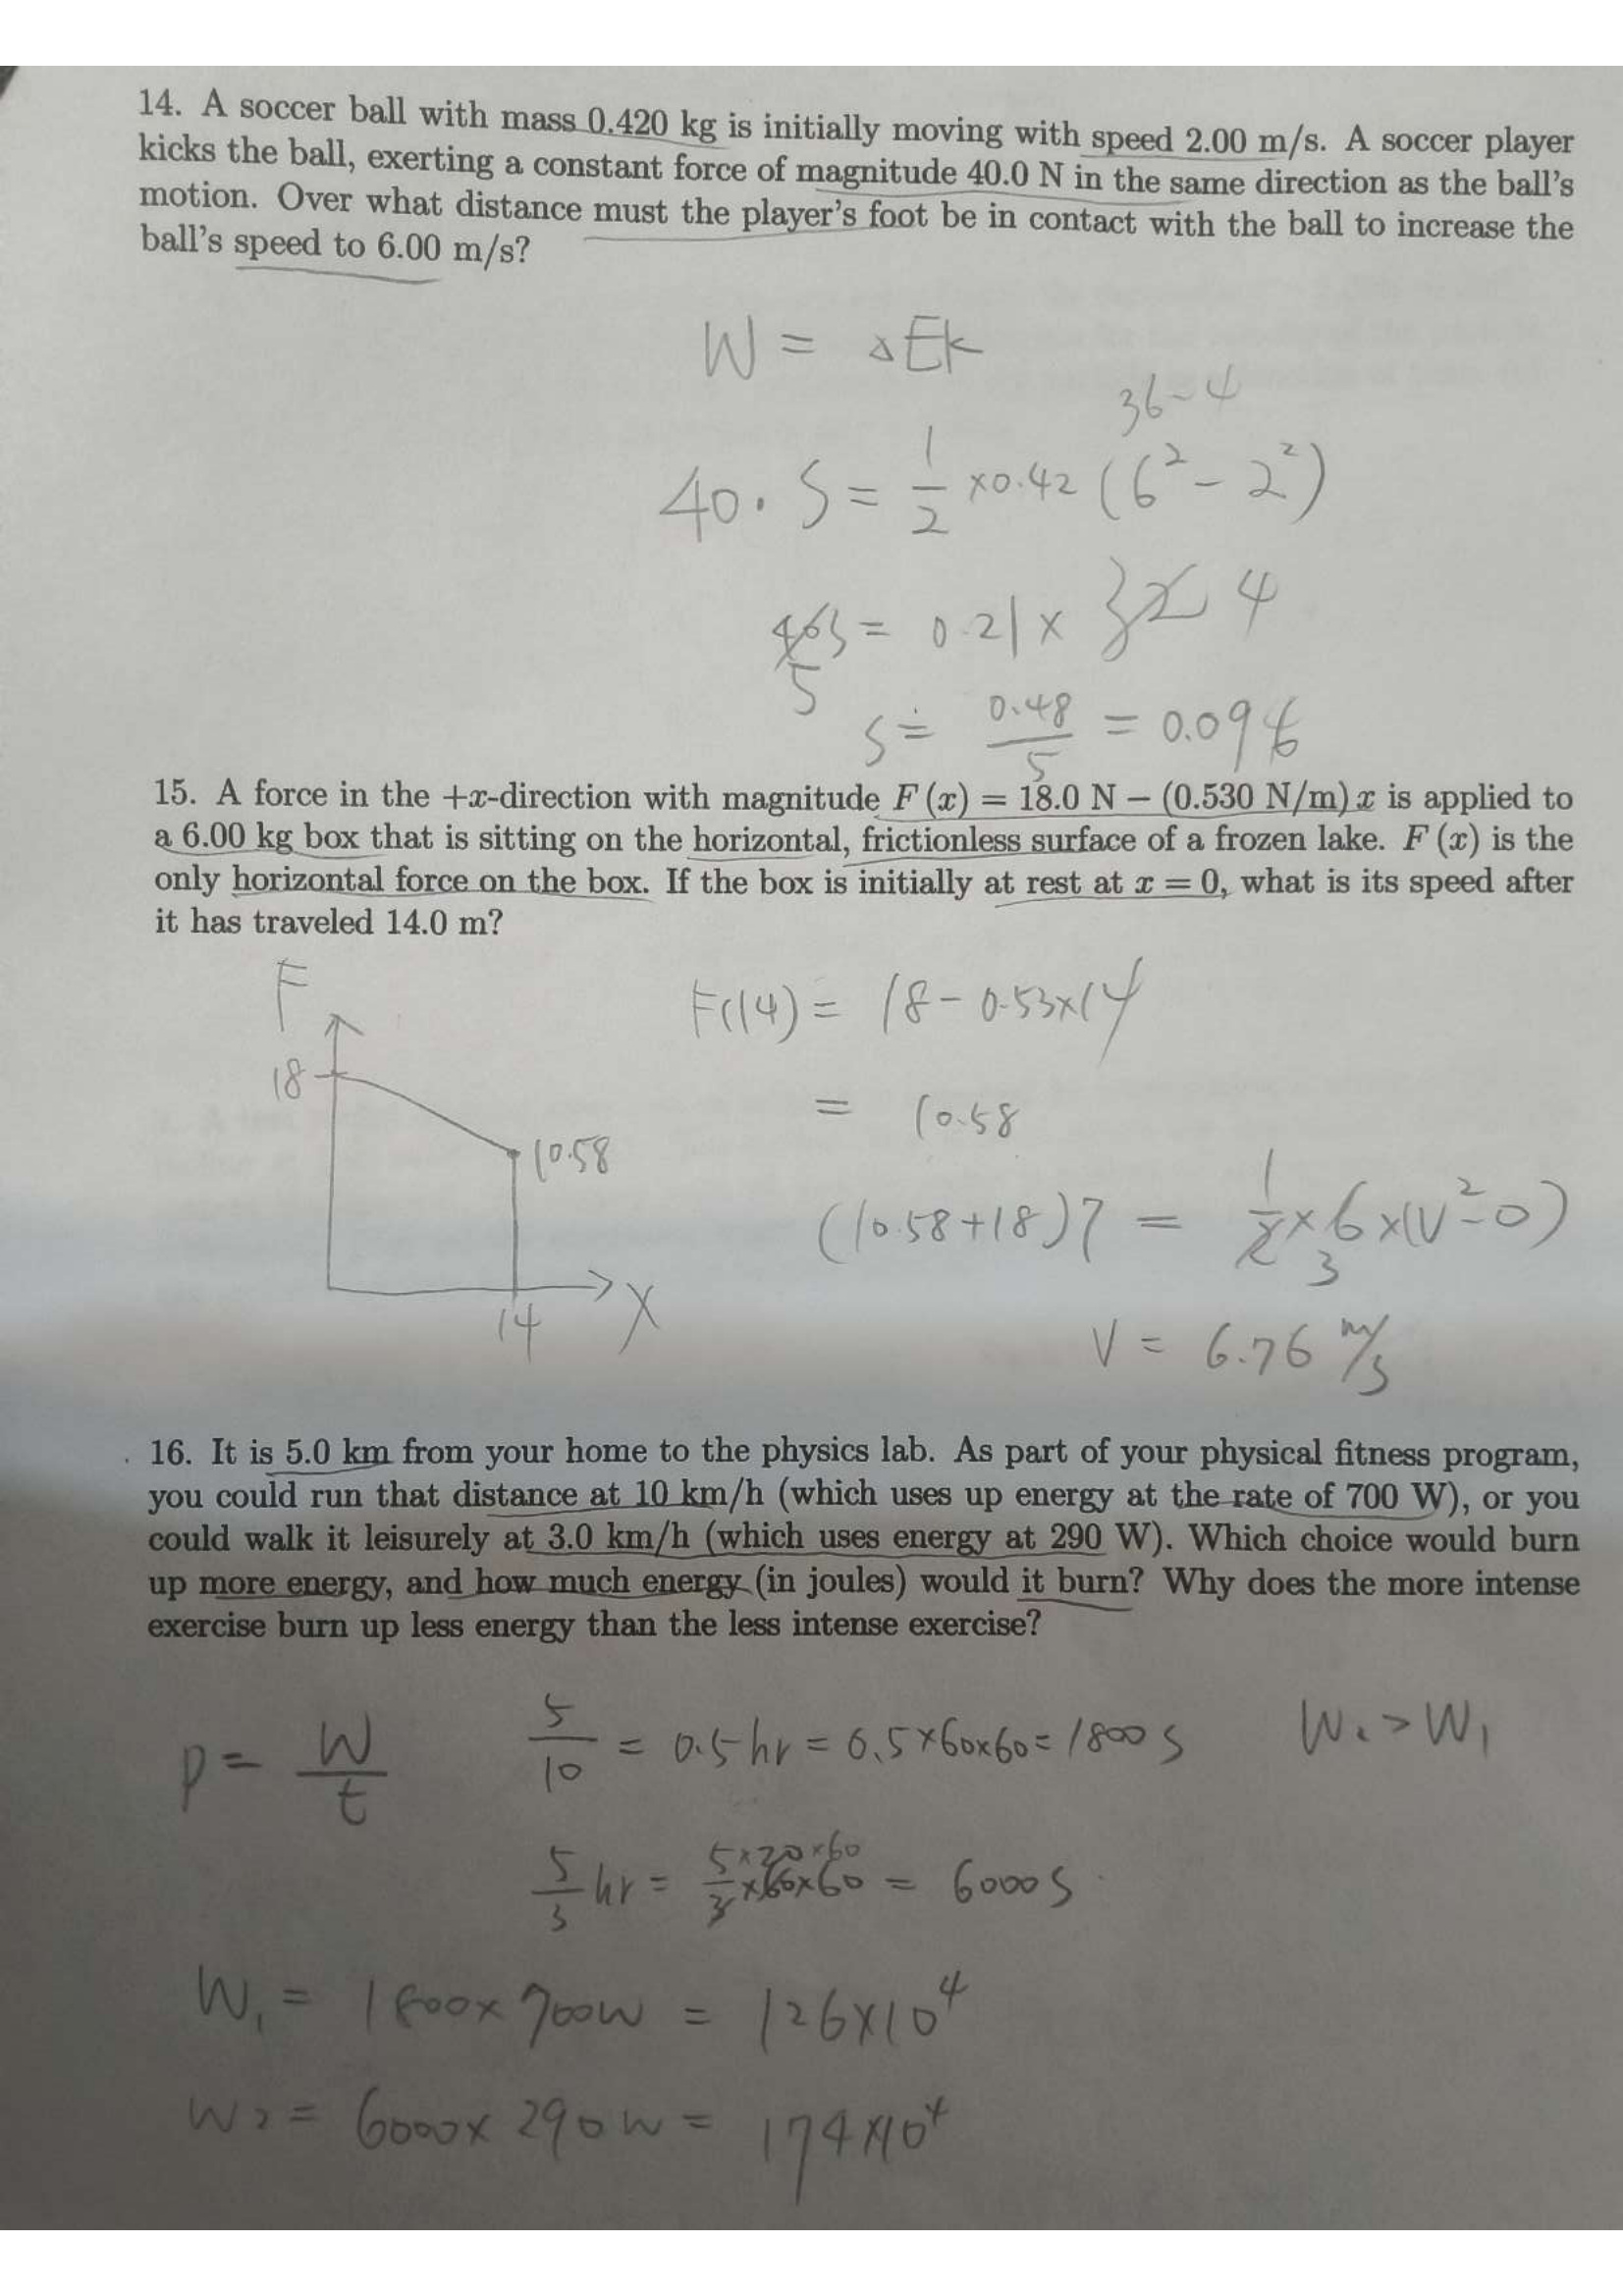 14. A soccer ball with mass 0.420 kg is initially moving with speed 2.00 m/s. A soccer player
kicks the ball, exerting a constant force of magnitude 40.0 N in the same direction as the ball's
motion. Over what distance must the player's foot be in contact with the ball to increase the
ball's speed to 6.00 m/s?
W = ΔEk
36-4
40. S = 1/2 ×0.42 (6² - 2²)
40S = 0.21 × 32 4
5
S = 0.48/5 = 0.096
15. A force in the +x-direction with magnitude F (x) = 18.0 N − (0.530 N/m) x is applied to
a 6.00 kg box that is sitting on the horizontal, frictionless surface of a frozen lake. F (x) is the
only horizontal force on the box. If the box is initially at rest at x = 0, what is its speed after
it has traveled 14.0 m?
F
F(14) = 18 - 0.53×14
18
= 10.58
10.58
(10.58+18)7 = 1/2 × 6 ×(V²-0)
3
14 X
V = 6.76 m/s
16. It is 5.0 km from your home to the physics lab. As part of your physical fitness program,
you could run that distance at 10 km/h (which uses up energy at the rate of 700 W), or you
could walk it leisurely at 3.0 km/h (which uses energy at 290 W). Which choice would burn
up more energy, and how much energy (in joules) would it burn? Why does the more intense
exercise burn up less energy than the less intense exercise?
P = W/t 5/10 = 0.5 hr = 0.5×60×60 = 1800 S W₂ > W₁
5×20×60
5/3 hr = 5/3 ×60×60 = 6000 S
W₁ = 1800× 700W = 126×10⁴
W₂ = 6000× 290W = 174×10⁴